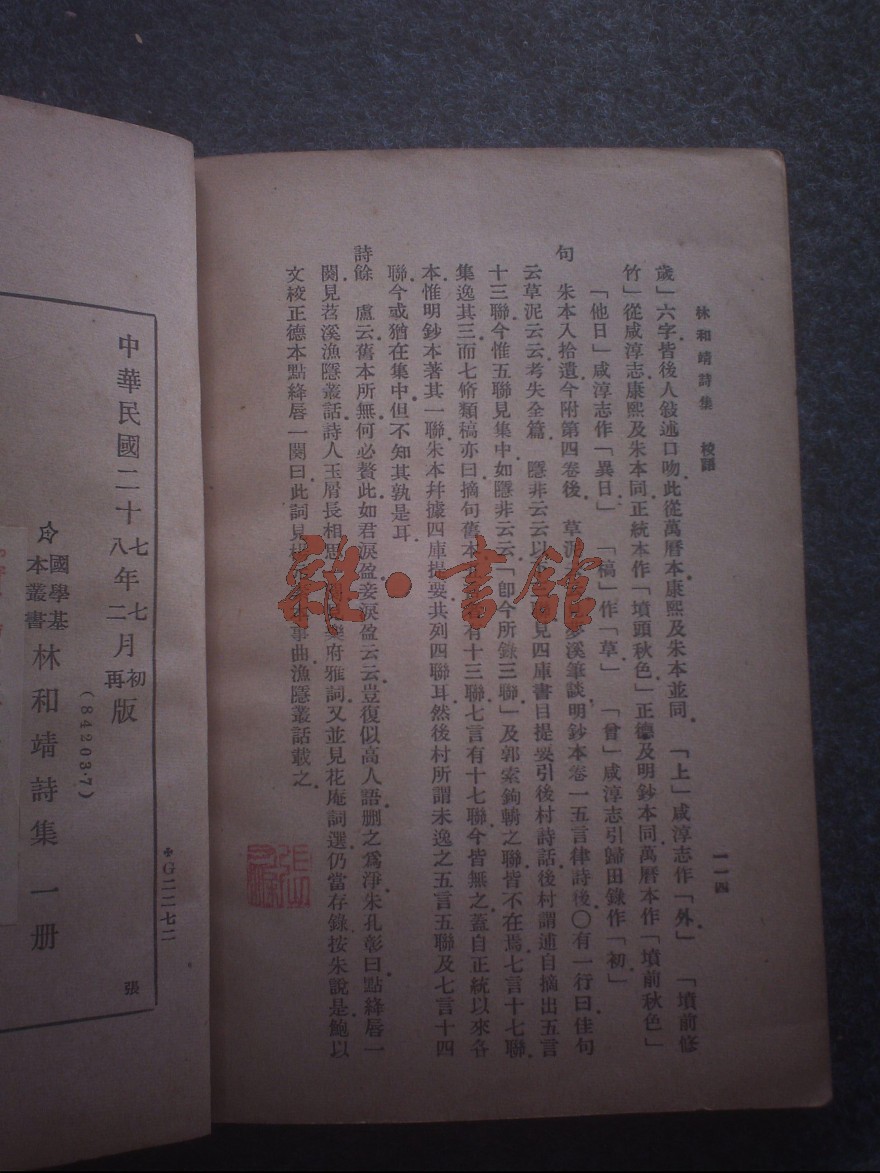 林和靖詩集 校語
一一四
歲」六字皆後人敍述口吻此從萬曆本康熙及朱本並同 「上」咸淳志作「外」 「墳前修
竹」從咸淳志康熙及朱本同正統本作「墳頭秋色」正德及明鈔本同萬曆本作「墳前秋色」
「他日」咸淳志作「異日」 「稿」作「草」 「曾」咸淳志引歸田錄作「初」
句 朱本入拾遺今附第四卷後 草泥 夢溪筆談明鈔本卷一五言律詩後〇有一行曰佳句
云草泥云云考失全篇 隱非云云以 見四庫書目提要引後村詩話後村謂逋自摘出五言
十三聯今惟五聯見集中如隱非云云「卽今所錄三聯」及郭索鉤輈之聯皆不在焉七言十七聯
集逸其三而七脩類稿亦曰摘句舊本 有十三聯七言有十七聯今皆無之蓋自正統以來各
本惟明鈔本著其一聯朱本幷據四庫提要共列四聯耳然後村所謂未逸之五言五聯及七言十四
聯今或猶在集中但不知其孰是耳
詩餘 盧云舊本所無何必贅此如君淚盈妾淚盈云云豈復似高人語刪之爲淨朱孔彰曰點絳唇一
闋見苕溪漁隱叢話詩人玉屑長相思 樂府雅詞又並見花庵詞選仍當存錄按朱說是鮑以
文校正德本點絳唇一闋曰此詞見 事曲漁隱叢話載之
雜·書館
中華民國二十七年七月初版
八年二月再版
國學基本叢書 林和靖詩集 一册
(84203·7)
G二二七二
張